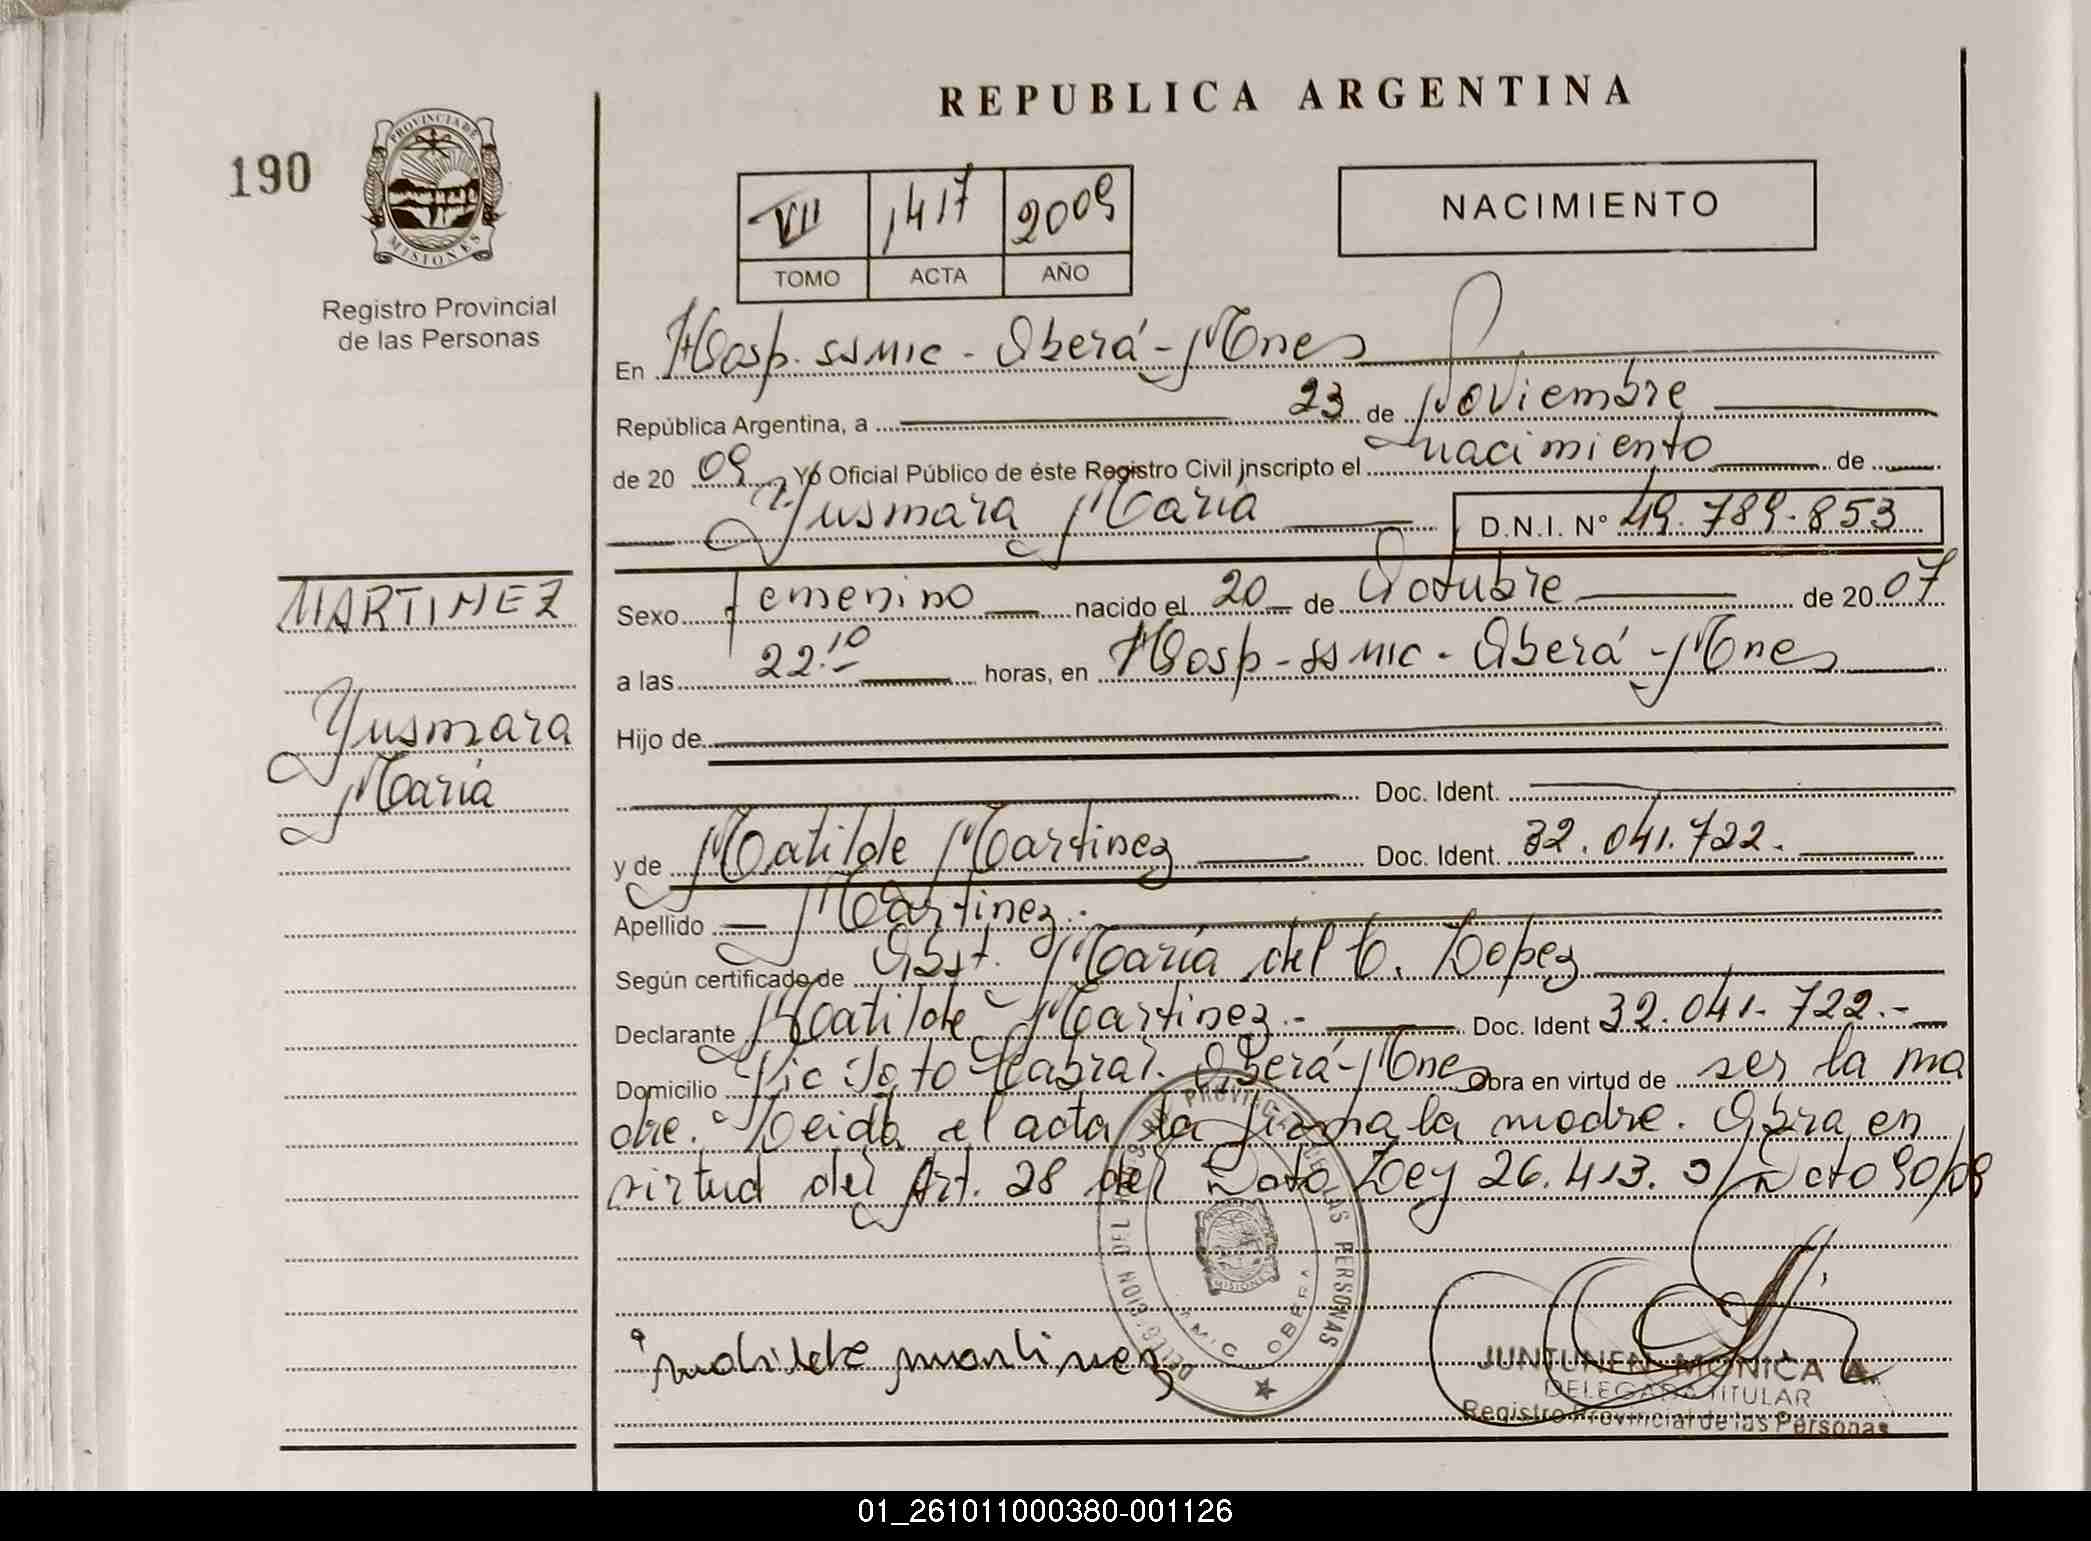 REPUBLICA ARGENTINA
190
PROVINCIA DE
MISIONES
Registro Provincial
de las Personas
VII 1417 2009
TOMO ACTA AÑO
NACIMIENTO
En Hosp. SSMIC - Oberá - Mnes
República Argentina, a 23 de Noviembre
de 20 09 Yo Oficial Público de éste Registro Civil inscripto el nacimiento de
Yusmara Maria D.N.I. N° 49.789.853
MARTINEZ
Yusmara
Maria
Sexo femenino nacido el 20 de Octubre de 20 07
a las 22.10 horas, en Hosp - SSMIC - Oberá - Mnes
Hijo de
Doc. Ident.
y de Matilde Martinez Doc. Ident. 32.041.722.
Apellido Martinez.
Según certificado de Obst. Maria del C. Lopez
Declarante Matilde Martinez.- Doc. Ident 32.041.722.-
Domicilio Cabral. Oberá - Mnes Obra en virtud de ser la ma
dre. Leida el acta la firma la madre. Obra en
virtud del Art. 28 del Ley 26.413. Dcto 90/09
DELEGACION DEL REGISTRO PROVINCIAL DE LAS PERSONAS
MISIONES
OBERA
matilde martinez
JUNTUNEN MONICA A.
DELEGADA TITULAR
Registro Provincial de las Personas
01_261011000380-001126